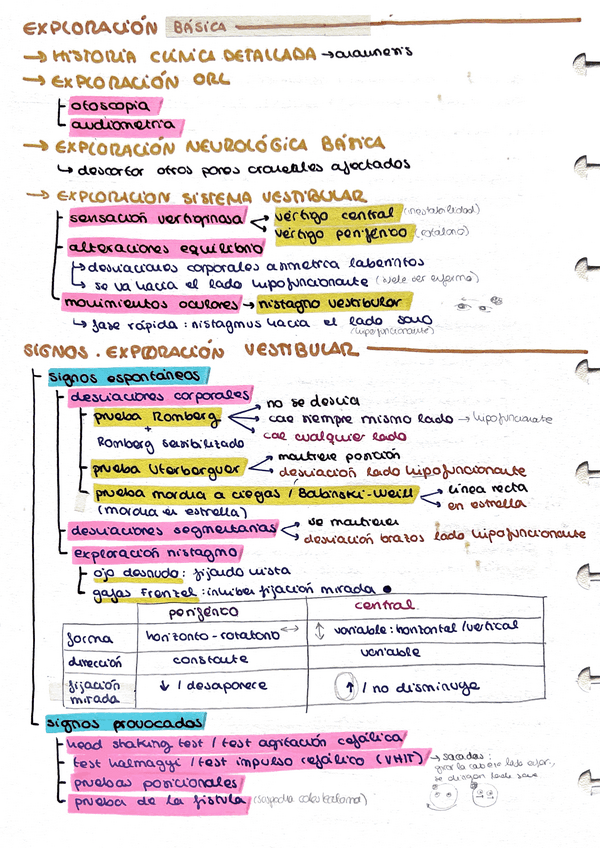 EXPLORACIÓN BÁSICA
→ HISTORIA CLÍNICA DETALLADA → anamnesis
→ EXPLORACIÓN ORL
otoscopia
audiometría
→ EXPLORACIÓN NEUROLÓGICA BÁSICA
↳ descartar otros pares craneales afectados
→ EXPLORACIÓN SISTEMA VESTIBULAR
sensación vertiginosa vértigo central (inestabilidad)
vértigo periférico (rotatorio)
alteraciones equilibrio
↳ desviaciones corporales asimetría laberintos
↳ se va hacia el lado hipofuncionante (suele ser enfermo)
movimientos oculares → nistagno vestibular
↳ fase rápida: nistagmus hacia el lado sano
(hipofuncionante)
SIGNOS. EXPLORACIÓN VESTIBULAR
signos espontáneos
desviaciones corporales
no se desvía
prueba Romberg cae siempre mismo lado → hipofuncionante
+
Romberg sensibilizado cae cualquier lado
mantiene posición
prueba Uterberguer desviación lado hipofuncionante
prueba marcha a ciegas / Babinski-Weill línea recta
(marcha en estrella) en estrella
desviaciones segmentarias se mantienen
desviación brazos lado hipofuncionante
exploración nistagmo
ojo desnudo: fijando vista
gafas Frenzel: inhiben fijación mirada
periférico central
forma horizonto-rotatorio ↔ ↕ variable: horizontal / vertical
dirección constante variable
fijación mirada ↓ / desaparece ↑ / no disminuye
signos provocados
head shaking test / test agitación cefálica
test halmagyi / test impulso cefálico (VHIT) → sacadas:
girar la cabeza lado enfer.,
se dirigen lado sano
pruebas posicionales
prueba de la fístula (sospecha colesteatoma)